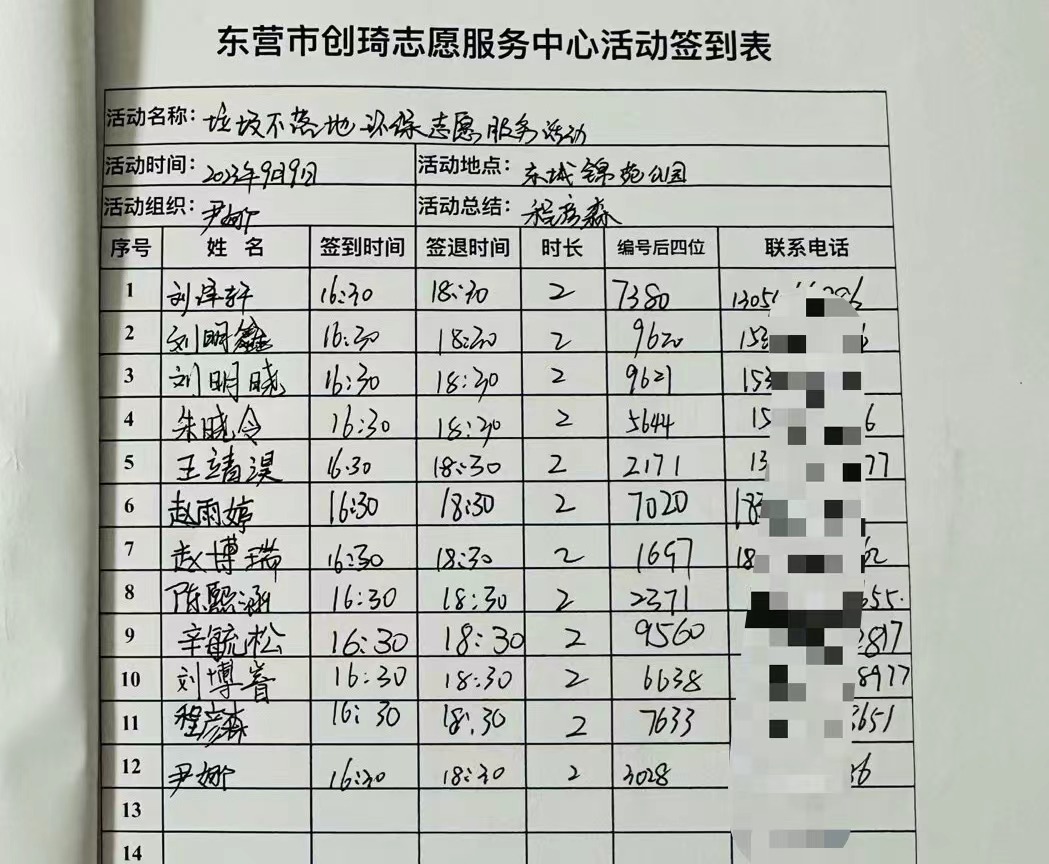 东营市创琦志愿服务中心活动签到表
活动名称: 垃圾不落地 环保志愿服务活动
活动时间: 2023年9月9日 活动地点: 东城锦苑公园
活动组织: 尹娜 活动总结: 程彦森
序号 姓名 签到时间 签退时间 时长 编号后四位 联系电话
1 刘泽轩 16:30 18:30 2 7380 1305
2 刘明鑫 16:30 18:30 2 9620 153
3 刘明晓 16:30 18:30 2 9621 153
4 朱晓令 16:30 18:30 2 5644 15 6
5 王靖淏 16:30 18:30 2 2171 13 77
6 赵雨婷 16:30 18:30 2 7020 183
7 赵博瑞 16:30 18:30 2 1697 18 62
8 陈熙涵 16:30 18:30 2 2371 655.
9 辛毓松 16:30 18:30 2 9560 2817
10 刘博睿 16:30 18:30 2 6638 8977
11 程彦森 16:30 18:30 2 7633 3651
12 尹娜 16:30 18:30 2 3028 36
13
14